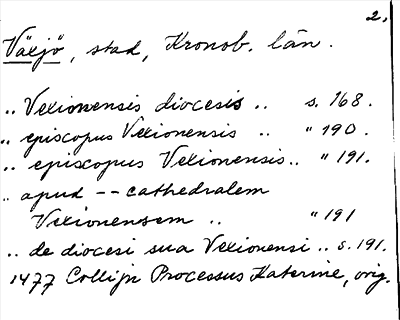 2.
Växjö, stad, Kronob. län.
.. Vexionensis diocesis .. s. 168.
.. episcopus Vexionensis .. " 190.
.. episcopus Vexionensis .. " 191.
.. apud -- cathedralem
Vexionensem .. " 191
.. de diocesi sua Vexionensi .. s. 191.
1477 Collijn Processus Katerine, orig.